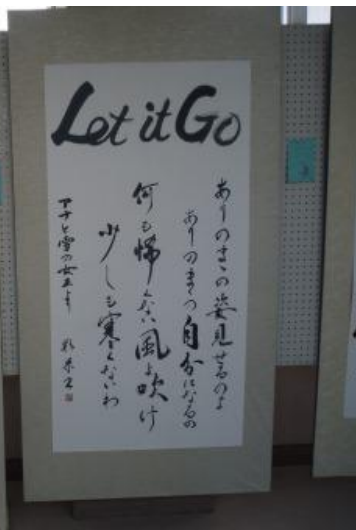 Let it Go
ありのまゝの姿見せるのよ
ありのまゝの自分になるの
何も怖くない風よ吹け
少しも寒くないわ
アナと雪の女王より